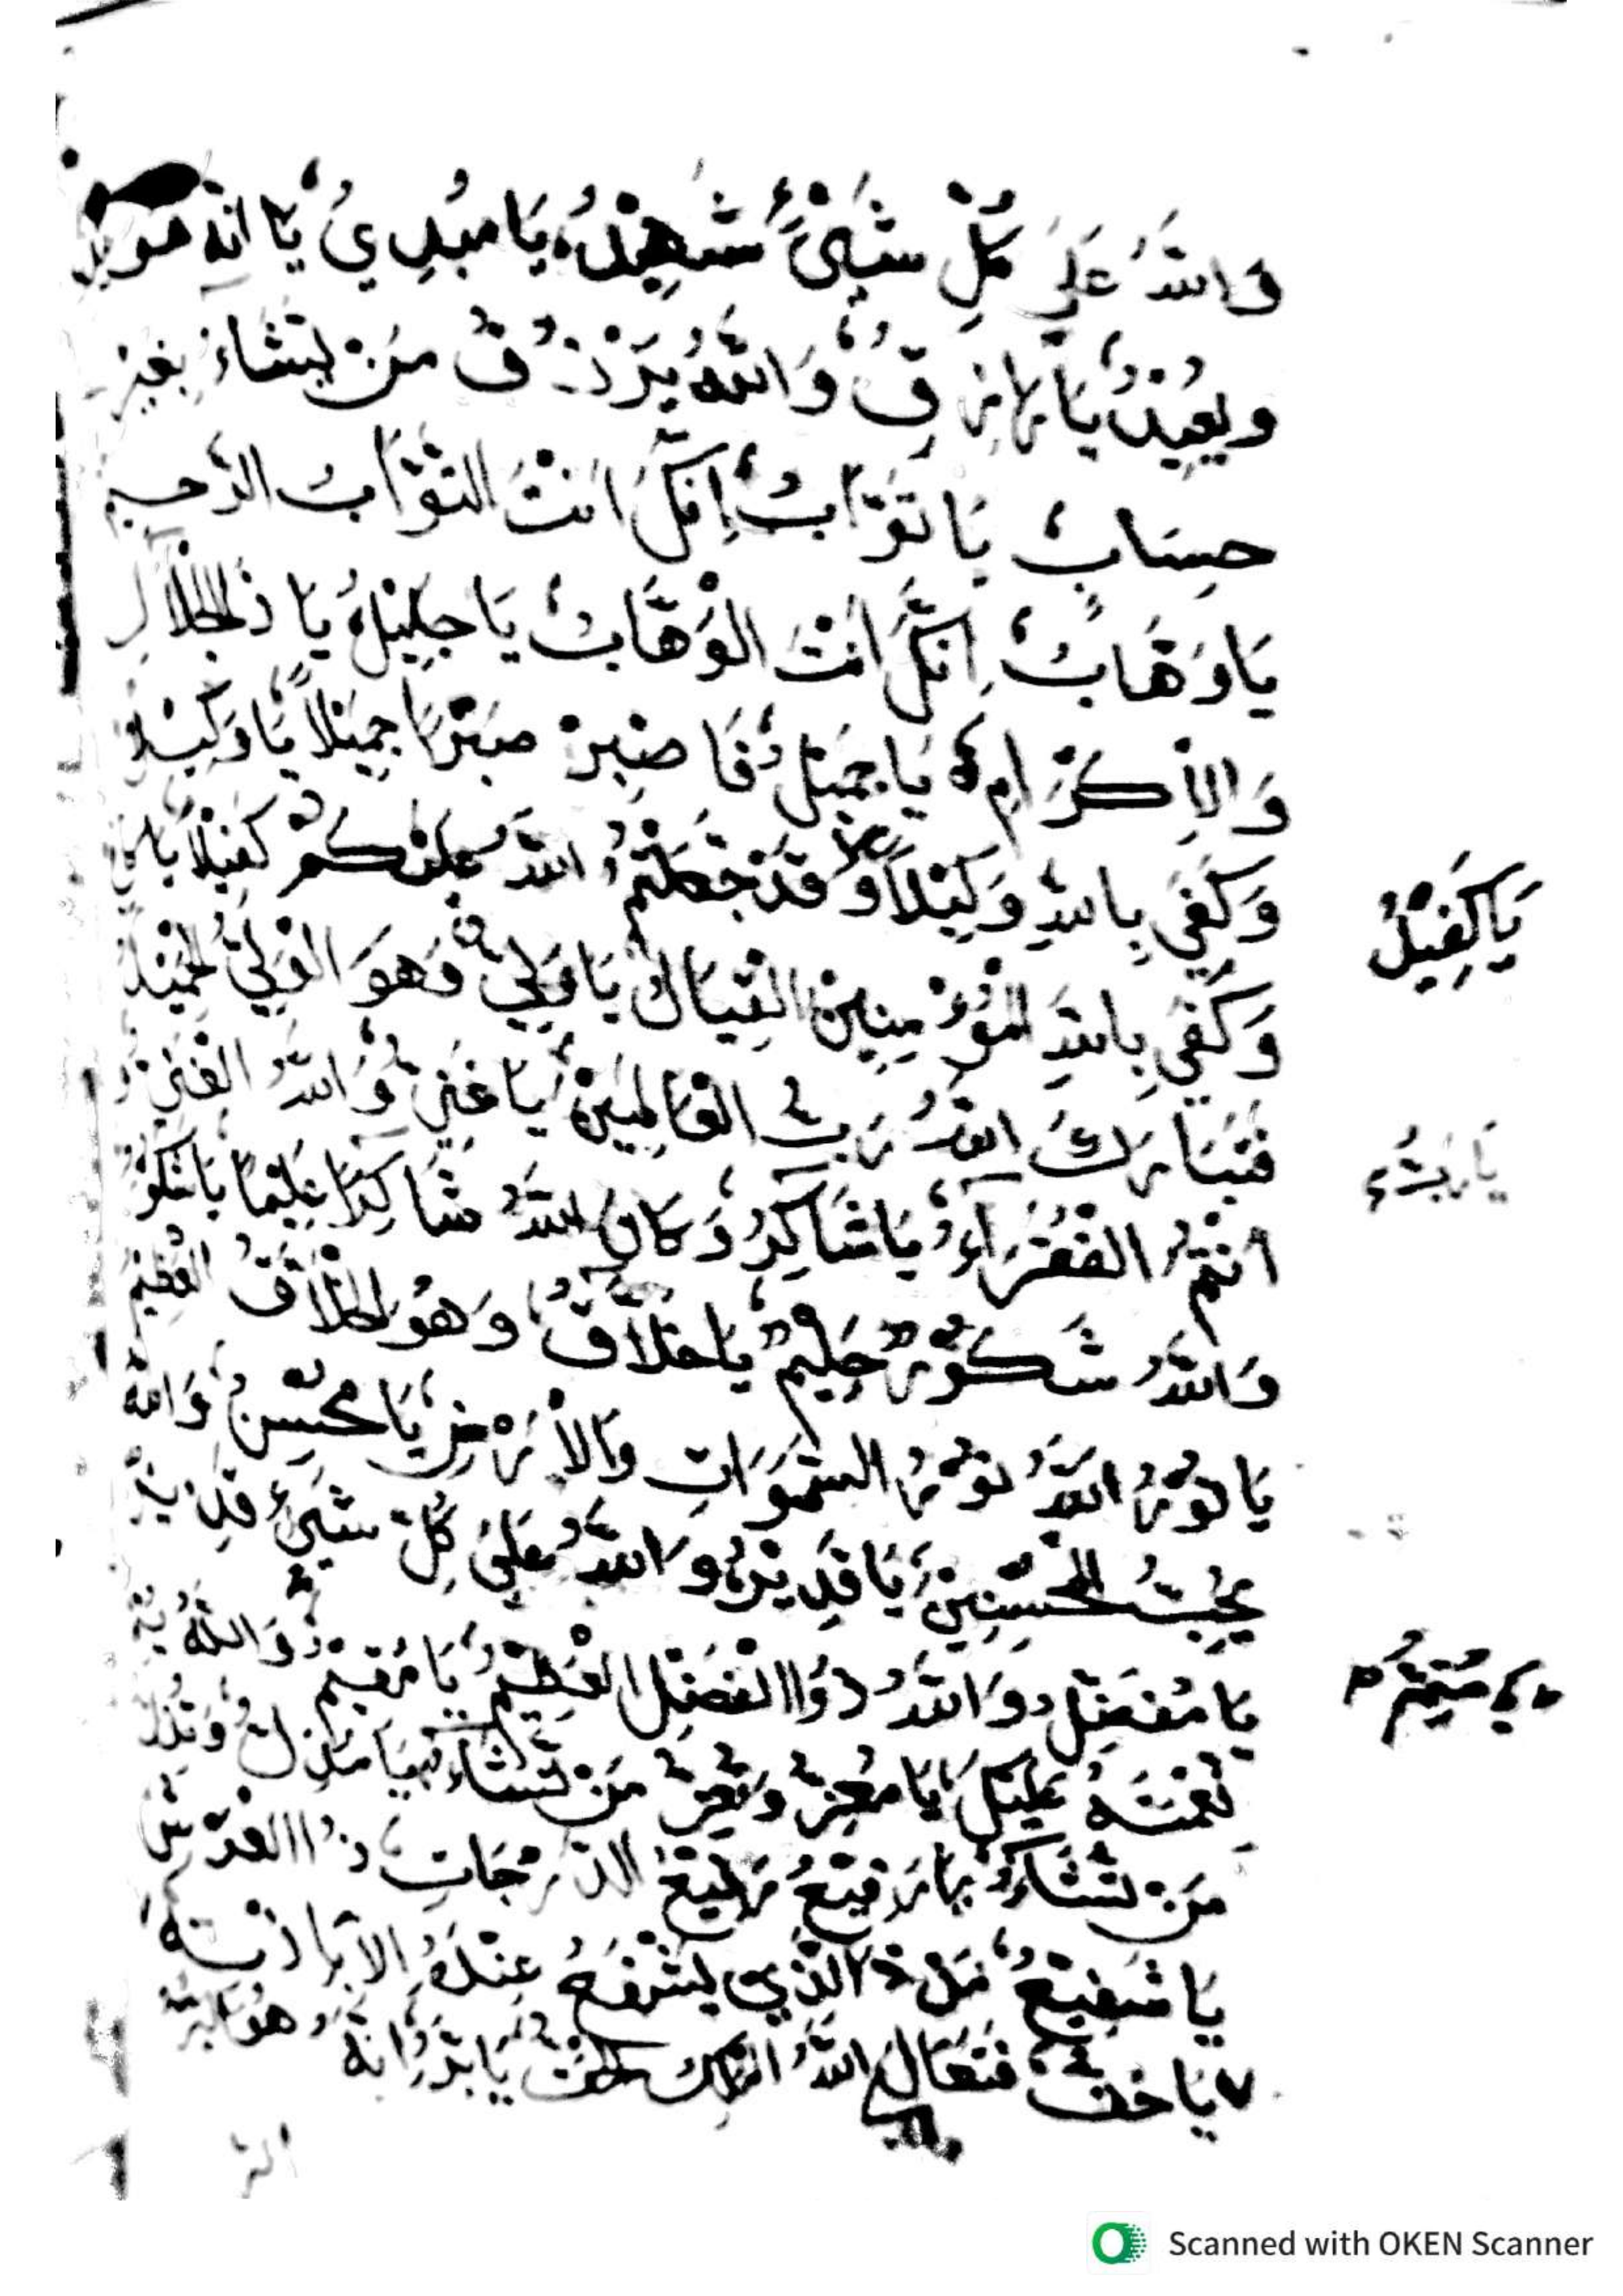 وَاللّٰهُ عَلَى كُلِّ شَيْءٍ شَهِيْدٌ يَا مُبْدِيُ يَا انه هو يبد
ويعيد يَا رازق وَاللّٰهُ يَرْزُقُ مَنْ يَشَاءُ بغير
حِسَابٍ يَا تَوَّابُ اِنَّكَ اَنْتَ التَّوَّابُ الرَّحِيم
يَا وَهَّابُ اِنَّكَ اَنْتَ الْوَهَّابُ يَا جَلِيْلُ يَا ذَالجَلَالِ
وَالْاِكْرَامِ يَا جَمِيْلُ فَاصْبِرْ صَبْرًا جَمِيْلًا يَا وَكِيْلُ
وَكَفَى بِاللّٰهِ وَكِيْلًا وَقَدْ جَعَلْتُمُ اللّٰهَ عَلَيْكُمْ كَفِيْلًا
يَا كَفِيْلُ
وَكَفَى بِاللّٰهِ الْمُؤْمِنِينَ الْقِتَالَ يَا وَلِيُّ وَهُوَ الْوَلِيُّ الْحَمِيْدُ
فَتَبَارَكَ اللّٰهُ رَبُّ الْعَالَمِيْنَ يَا غَنِيُّ وَاللّٰهُ الْغَنِيُّ و
يَا رَبُّ
اَنْتُمُ الْفُقَرَآءُ يَا شَاكِرُ وَكَانَ اللّٰهُ شَاكِرًا عَلِيْمًا يَا شَكُوْرُ
وَاللّٰهُ شَكُوْرٌ حَلِيْمٌ يَا خَلَّاقُ وَهُوَ الْخَلَّاقُ الْعَظِيْمُ
يَا نُوْرُ اللّٰهُ نُوْرُ السَّمٰوَاتِ وَالْاَرْضِ يَا مُحْسِنُ وَاللّٰهُ
يُحِبُّ الْمُحْسِنِيْنَ يَا قَدِيْرُ وَاللّٰهُ عَلَى كُلِّ شَيْءٍ قَدِيْر
يَا مُفَضِّلُ وَاللّٰهُ ذُوا الْفَضْلِ الْعَظِيْمُ يَا مُتِيْمُ وَاللّٰهُ يُتِ
يَا مُتِيْمُ
نِعْمَتَهُ عَلَيْكَ يَا مُعِزُّ وَتُعِزُّ مَنْ تَشَاءُ يَا مذل وَتُذِلُّ
مَنْ تَشَاءُ يَا رَفِيْعُ رَفِيْعُ الدَّرَجَاتِ ذُوا الْعَرْشِ
يَا شَفِيْعُ مَنْ ذَا الَّذِي يَشْفَعُ عِنْدَهُ اِلَّا بِاِذْنِهِ
يَا حَقُّ فَتَعَالَى اللّٰهُ الْمَلِكُ الْحَقُّ يَا بَرُّ اِنَّهُ هُوَ الْبَرُّ
الر
Scanned with OKEN Scanner